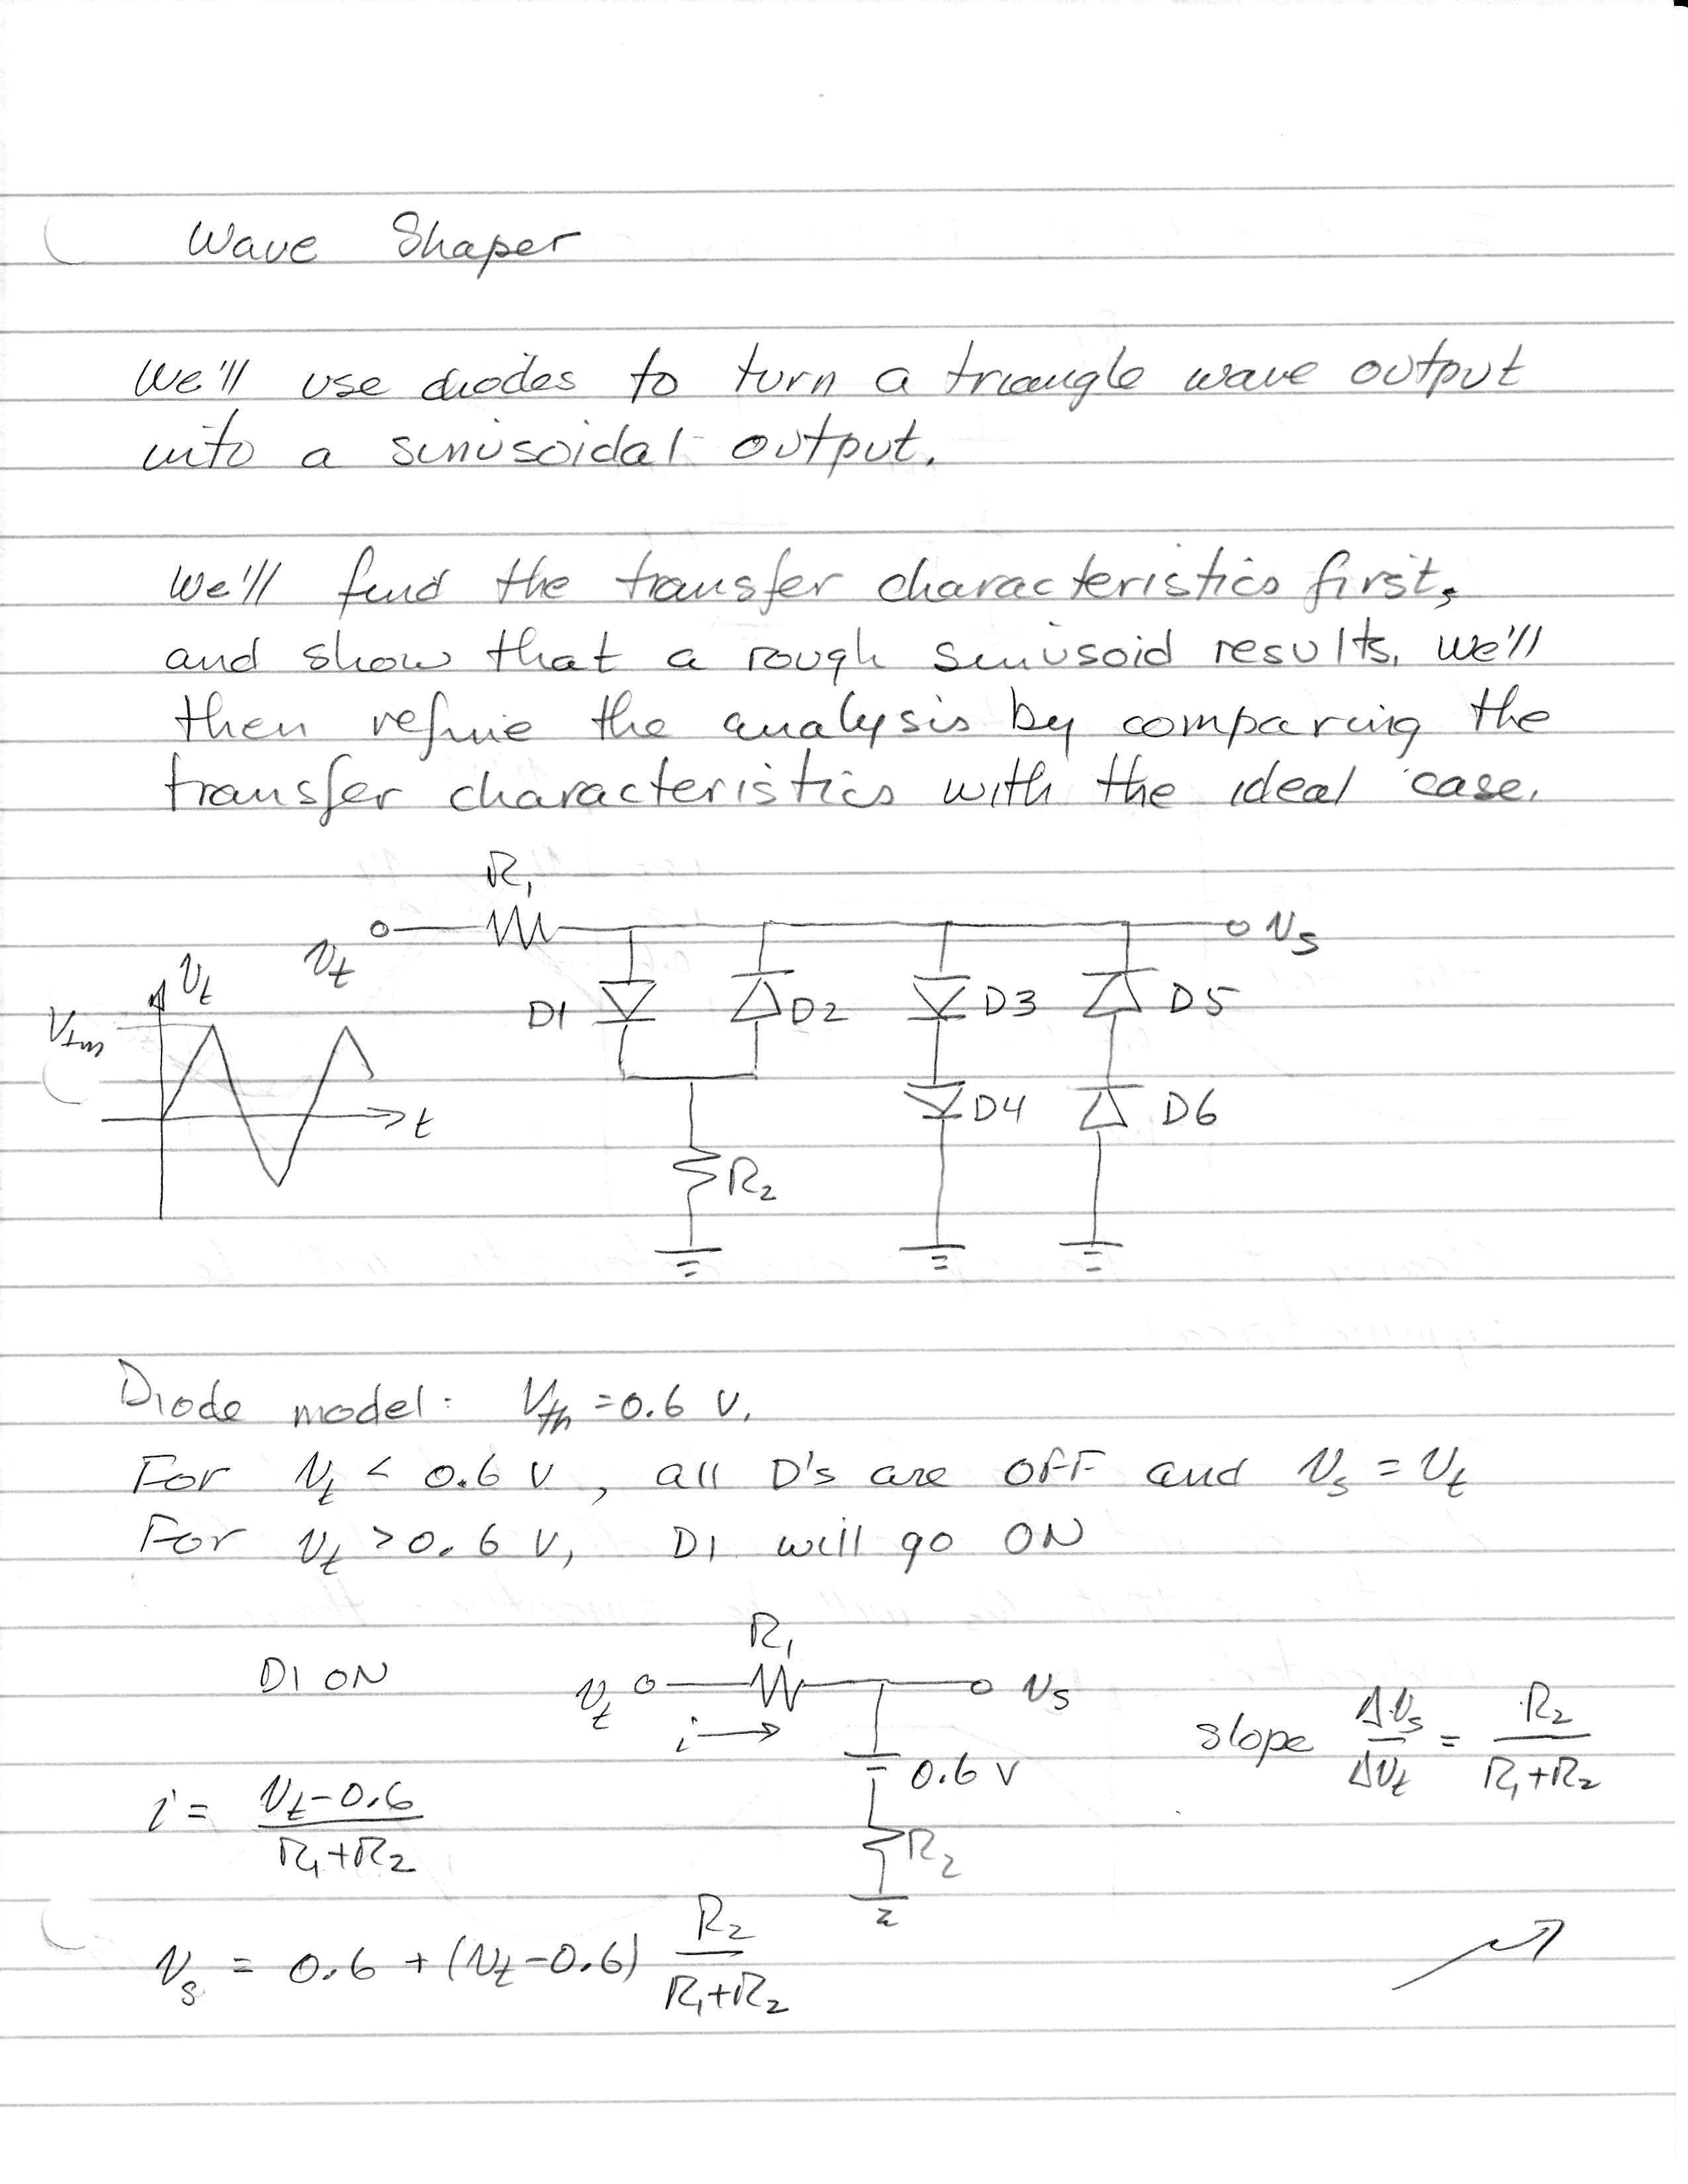 Wave Shaper
We'll use diodes to turn a triangle wave output
into a sinusoidal output.
We'll find the transfer characteristics first,
and show that a rough sinusoid results. We'll
then refine the analysis by comparing the
transfer characteristics with the ideal case.
R₁
v_t
v_s
v_t
V_tm
t
D1 D2 D3 D5
D4 D6
R₂
Diode model: V_th = 0.6 V.
For v_t < 0.6 V, all D's are OFF and v_s = v_t
For v_t > 0.6 V, D1 will go ON
R₁
D1 ON
v_t
v_s
i
slope Δv_s/Δv_t = R₂/(R₁+R₂)
0.6 V
i = (v_t-0.6)/(R₁+R₂)
R₂
v_s = 0.6 + (v_t-0.6) R₂/(R₁+R₂)